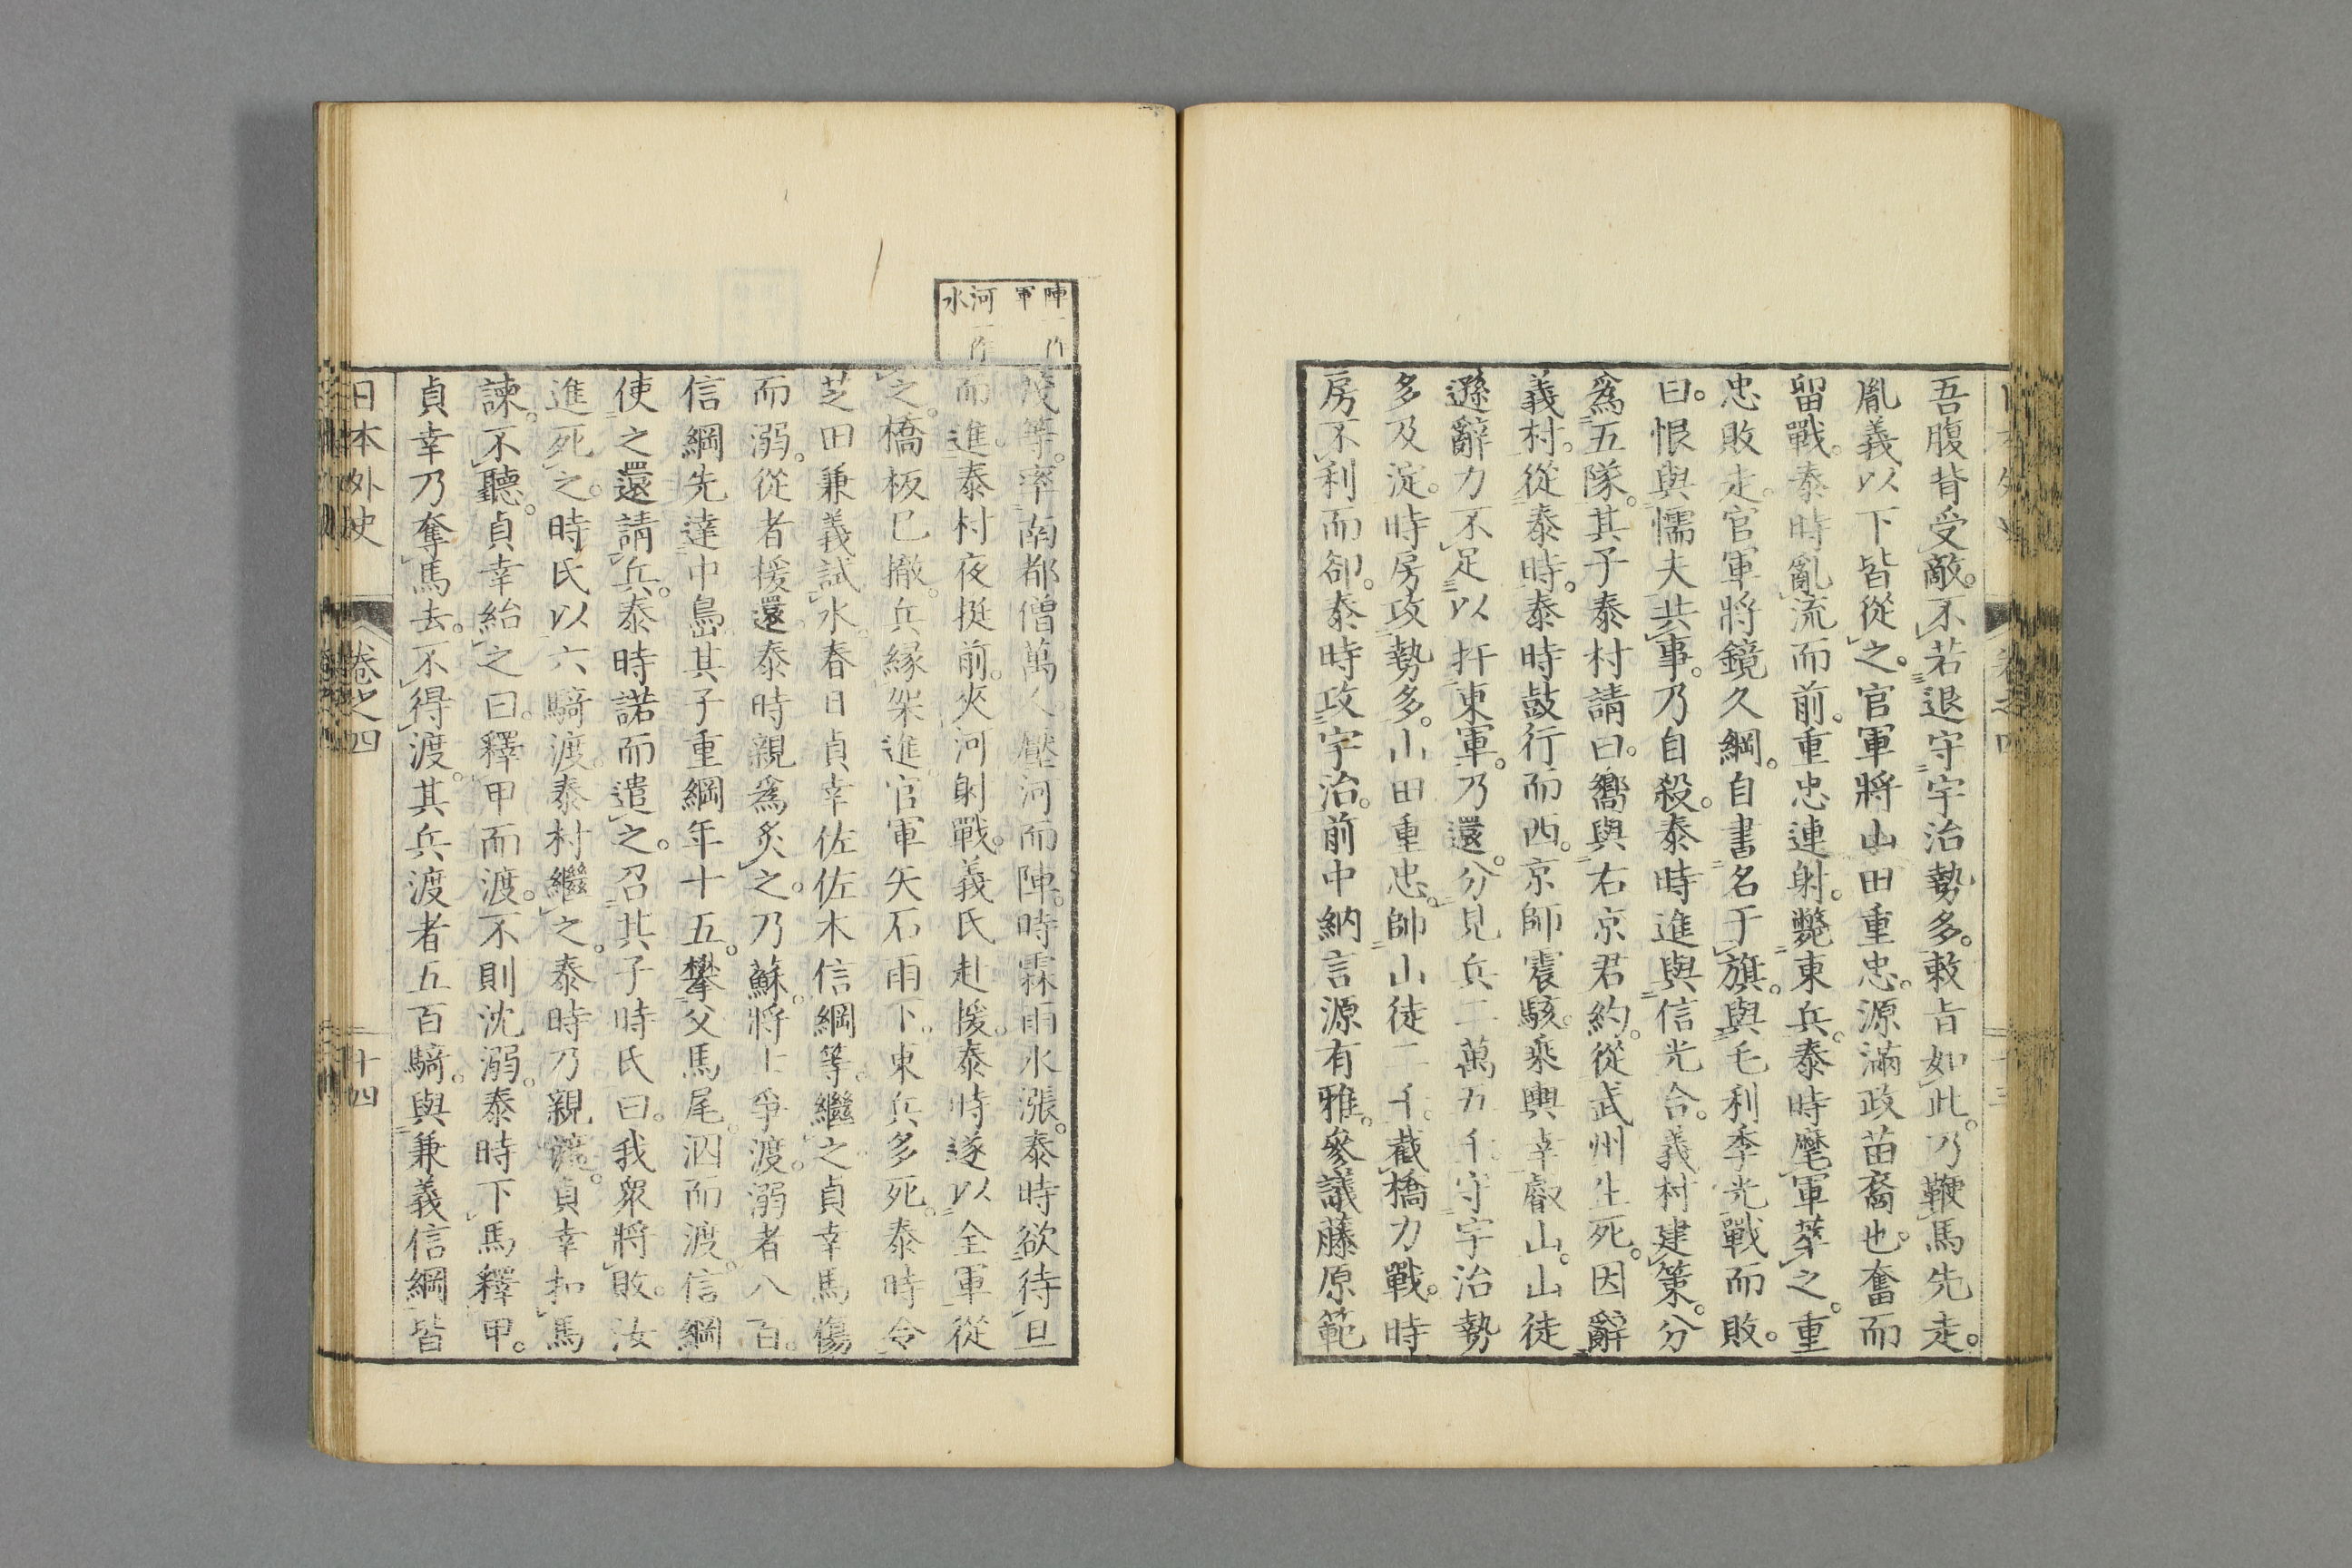 吾腹背受敵。不若退守宇治勢多。敕旨如此。乃鞭馬先走。
胤義以下皆從之。官軍將山田重忠。源滿政苗裔也。奮而
留戰。泰時亂流而前。重忠連射。斃東兵。泰時麾軍萃之。重
忠敗走。官軍將鏡久綱。自書名于旗。與毛利季光戰而敗。
曰。恨與懦夫共事。乃自殺。泰時進與信光合。義村建策。分
爲五隊。其子泰村請曰。嚮與右京君約。從武州生死。因辭
義村。從泰時。泰時鼓行而西。京師震駭。乘輿幸叡山。山徒
遜辭力不足以扞東軍。乃還。分見兵二萬五千守宇治勢
多及淀。時房攻勢多。山田重忠。帥山徒二千。截橋力戰。時
房不利而卻。泰時攻宇治。前中納言源有雅。參議藤原範
陣一作
軍
河一作
水
茂等。率南都僧萬人壓河而陣。時霖雨水漲。泰時欲待旦
而進。泰村夜挺前。夾河射戰。義氏赴援。泰時遂以全軍從
之。橋板已撤。兵緣架進。官軍矢石雨下。東兵多死。泰時令
芝田兼義試水。春日貞幸佐佐木信綱等。繼之。貞幸馬傷
而溺。從者援還。泰時親爲炙之。乃蘇。將士爭渡。溺者八百。
信綱先達中島。其子重綱年十五。攀父馬尾。泅而渡。信綱
使之還請兵。泰時諾而遣之。召其子時氏曰。我衆將敗。汝
進死之。時氏以六騎渡。泰村繼之。泰時乃親渡。貞幸扣馬
諫。不聽。貞幸紿之曰。釋甲而渡。不則沈溺。泰時下馬釋甲。
貞幸乃奪馬去。不得渡。其兵渡者五百騎。與兼義信綱皆
日本外史
卷之四
十四